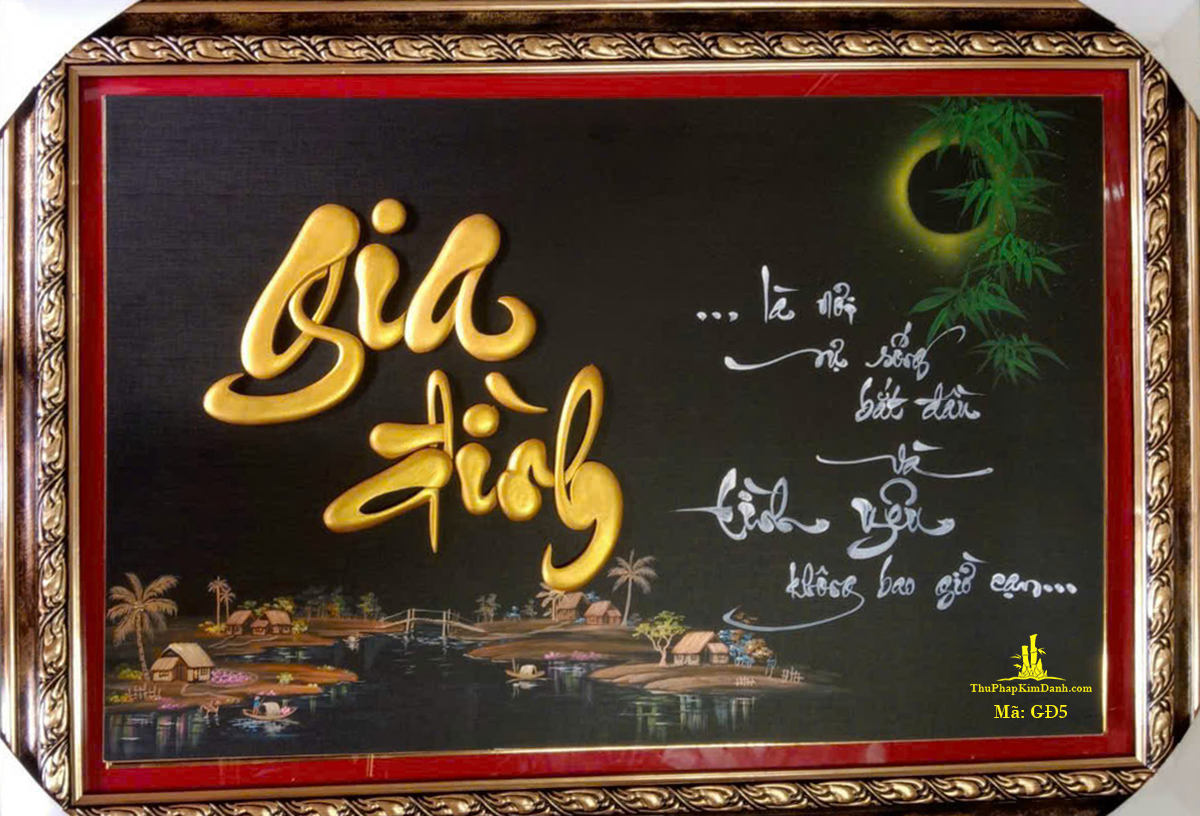 Gia
đình
... là nơi
sự sống
bắt đầu
và
tình yêu
không bao giờ cạn...
ThuPhapKimDanh.com
Mã: GĐ5